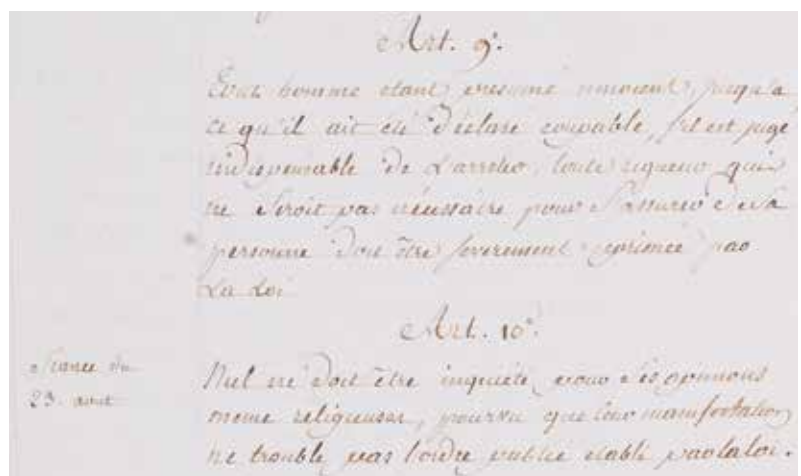 Art. 9e.
Tout homme étant présumé innocent, jusqu'à
ce qu'il ait été déclaré coupable, s'il est jugé
indispensable de L'arrêter, toute rigueur qui
ne seroit pas nécessaire pour s'assurer de sa
personne doit être severement réprimée par
La Loi.
Art. 10e.
Séance du
23 aout
Nul ne doit être inquiété pour ses opinions
meme religieuses, pourvu que leur manifestation
ne trouble pas l'ordre public établi par la loi.